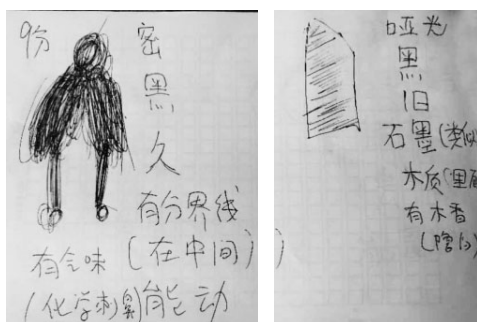 9份
密
黑
久
有分界线
(在中间)
有气味
(化学刺鼻)
能动
哑光
黑
旧
石墨(类似
木质(里面
有木香
(暗